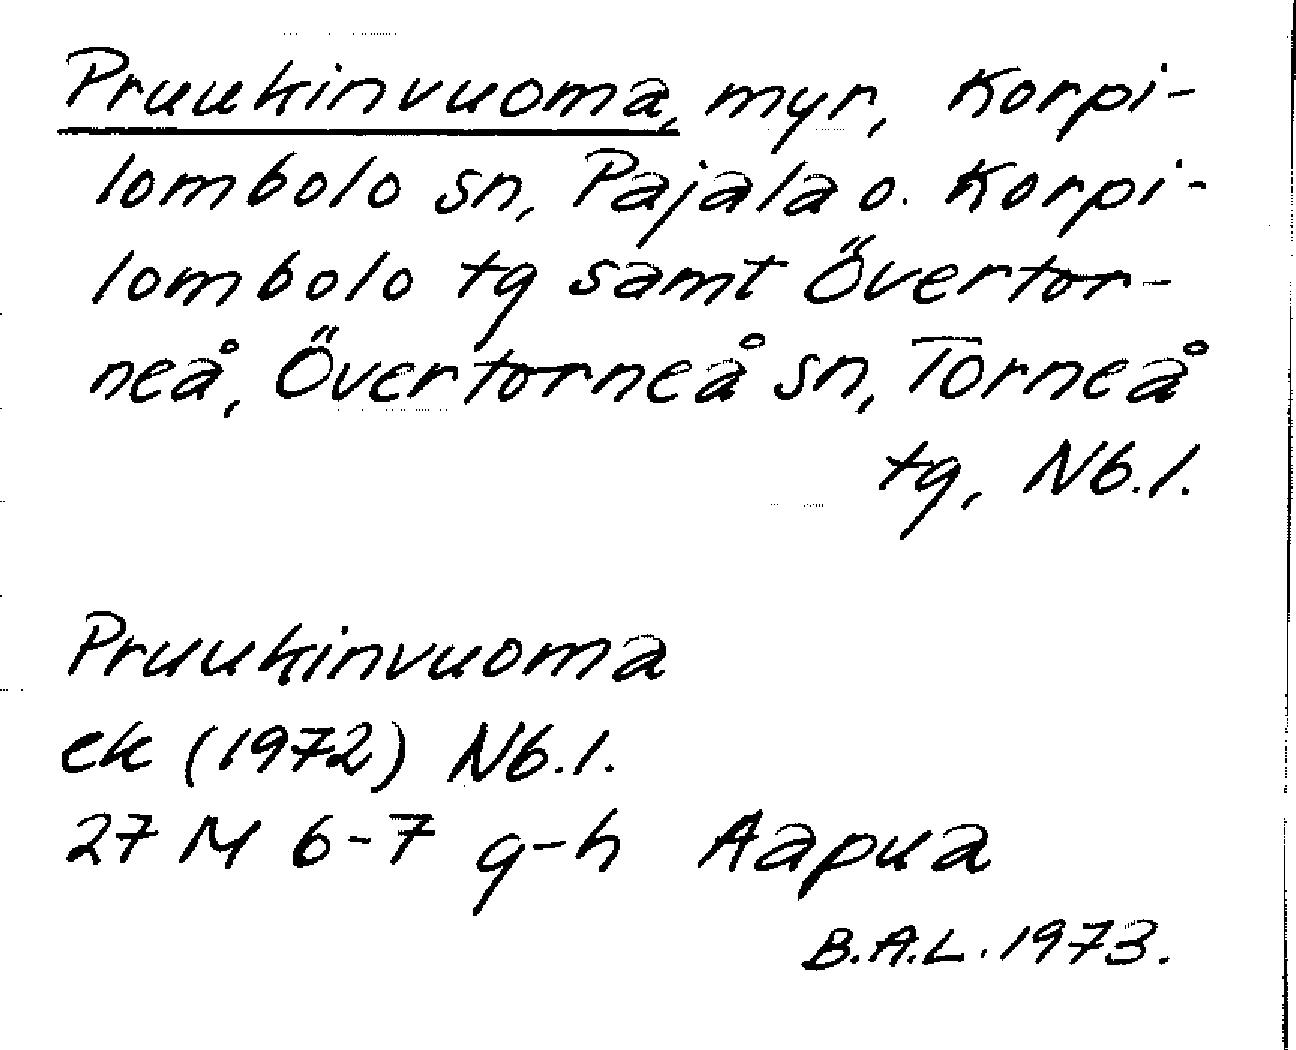 Pruukinvuoma, myr, Korpi-
lombolo sn, Pajala o. Korpi-
lombolo tg samt Övertor-
neå, Övertorneå sn, Torneå
tg, Nb.l.
Pruukinvuoma
ek (1972) Nb.l.
27 M 6-7 g-h Aapua
B.A.L. 1973.